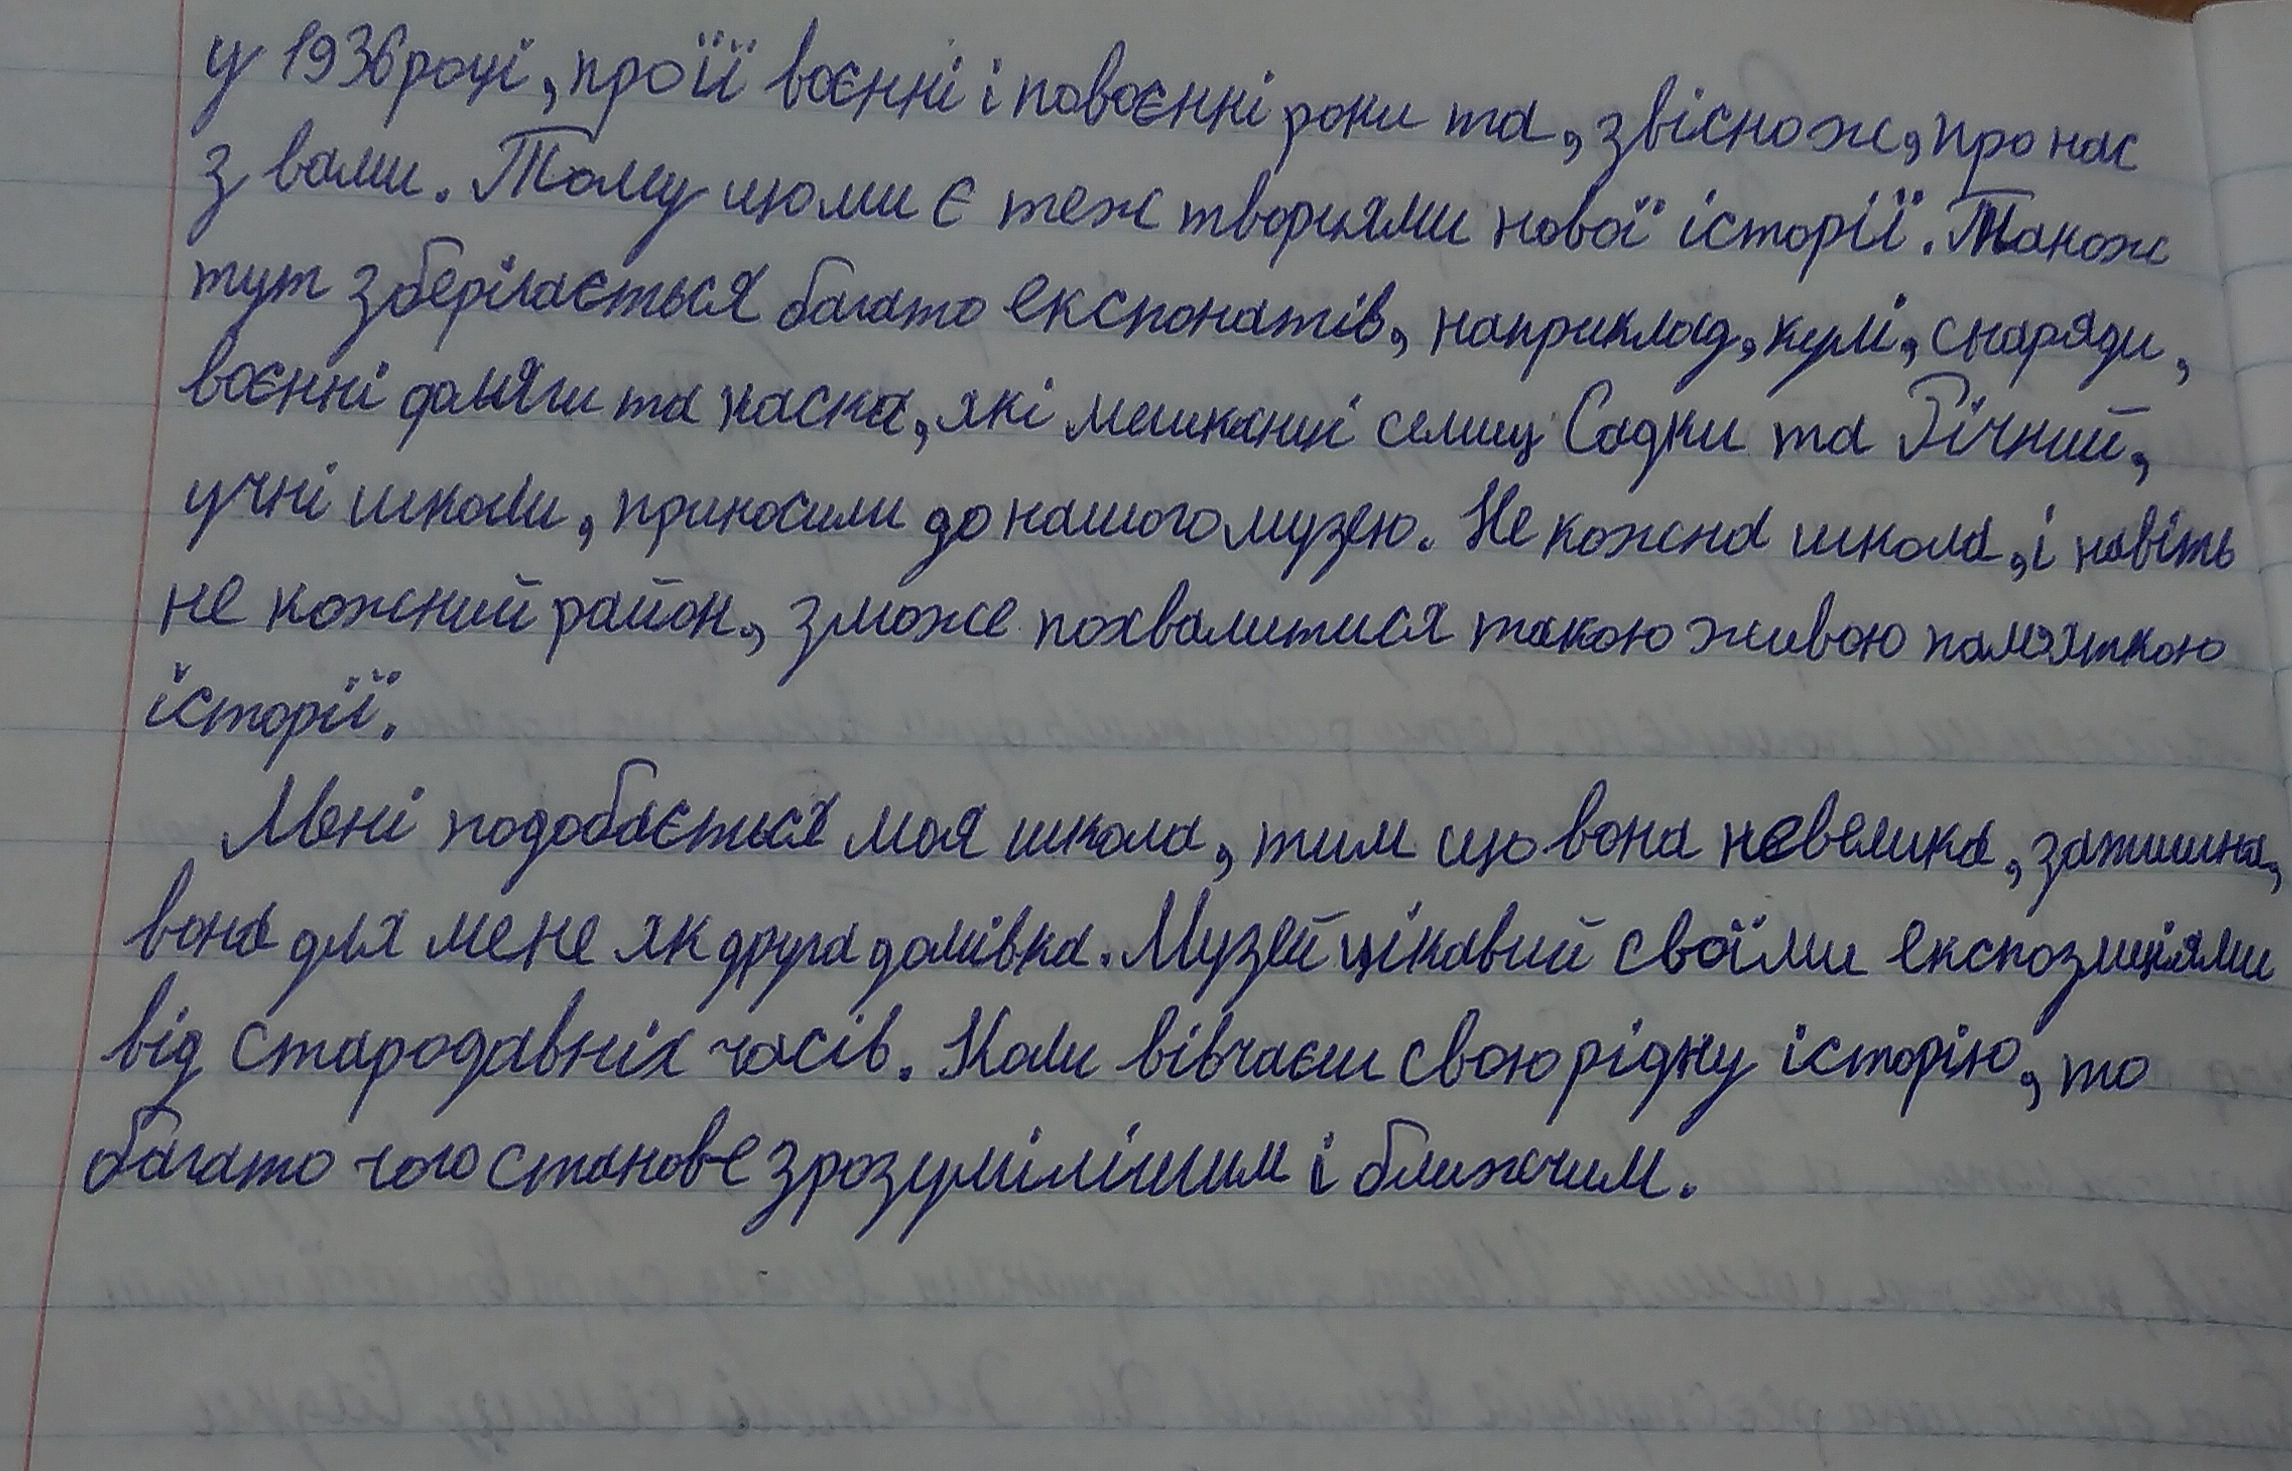 у 1936 році, про її воєнні і повоєнні роки та, звісно ж, про нас
з вами. Тому що ми є теж творцями нової історії. Також
тут зберігається багато експонатів, наприклад, кулі, снаряди,
воєнні фляги та каска, які мешканці селищ Садки та Річний,
учні школи, приносили до нашого музею. Не кожна школа, і навіть
не кожний район, зможе похвалитися такою живою пам'яткою
історії.
Мені подобається моя школа, тим що вона невелика, затишна,
вона для мене як друга домівка. Музей цікавий своїми експозиціями
від стародавніх часів. Коли вівчаєш свою рідну історію, то
багато чого станове зрозумілішим і ближчим.